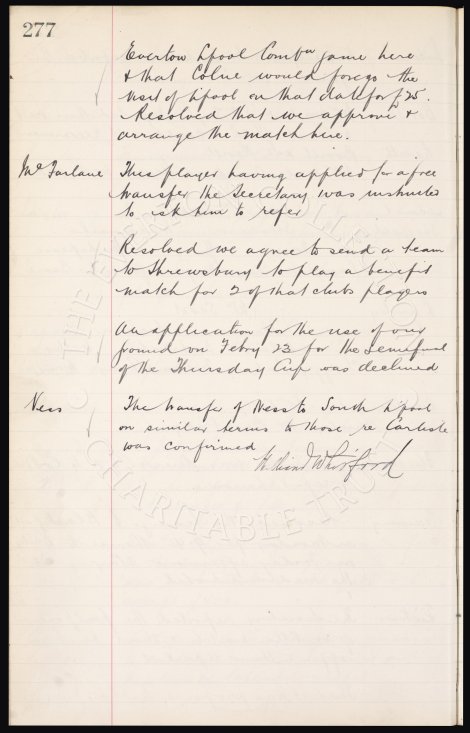 277
Everton Lpool Combn game here
& that Colne would forego the
visit of Lpool on that date for £25.
Resolved that we approve &
arrange the match here.
McFarlane This player having applied for a free
transfer the Secretary was instructed
to ask him to refer
Resolved we agree to send a team
to Shrewsbury to play a benefit
match for 2 of that clubs players
An application for the use of our
ground on Febry 23 for the semifinal
of the Thursday Cup was declined
Ness The transfer of Ness to South Lpool
on similar terms to those re Carlisle
was confirmed
Whitford
© THE EVERTON
CHARITABLE TRUST